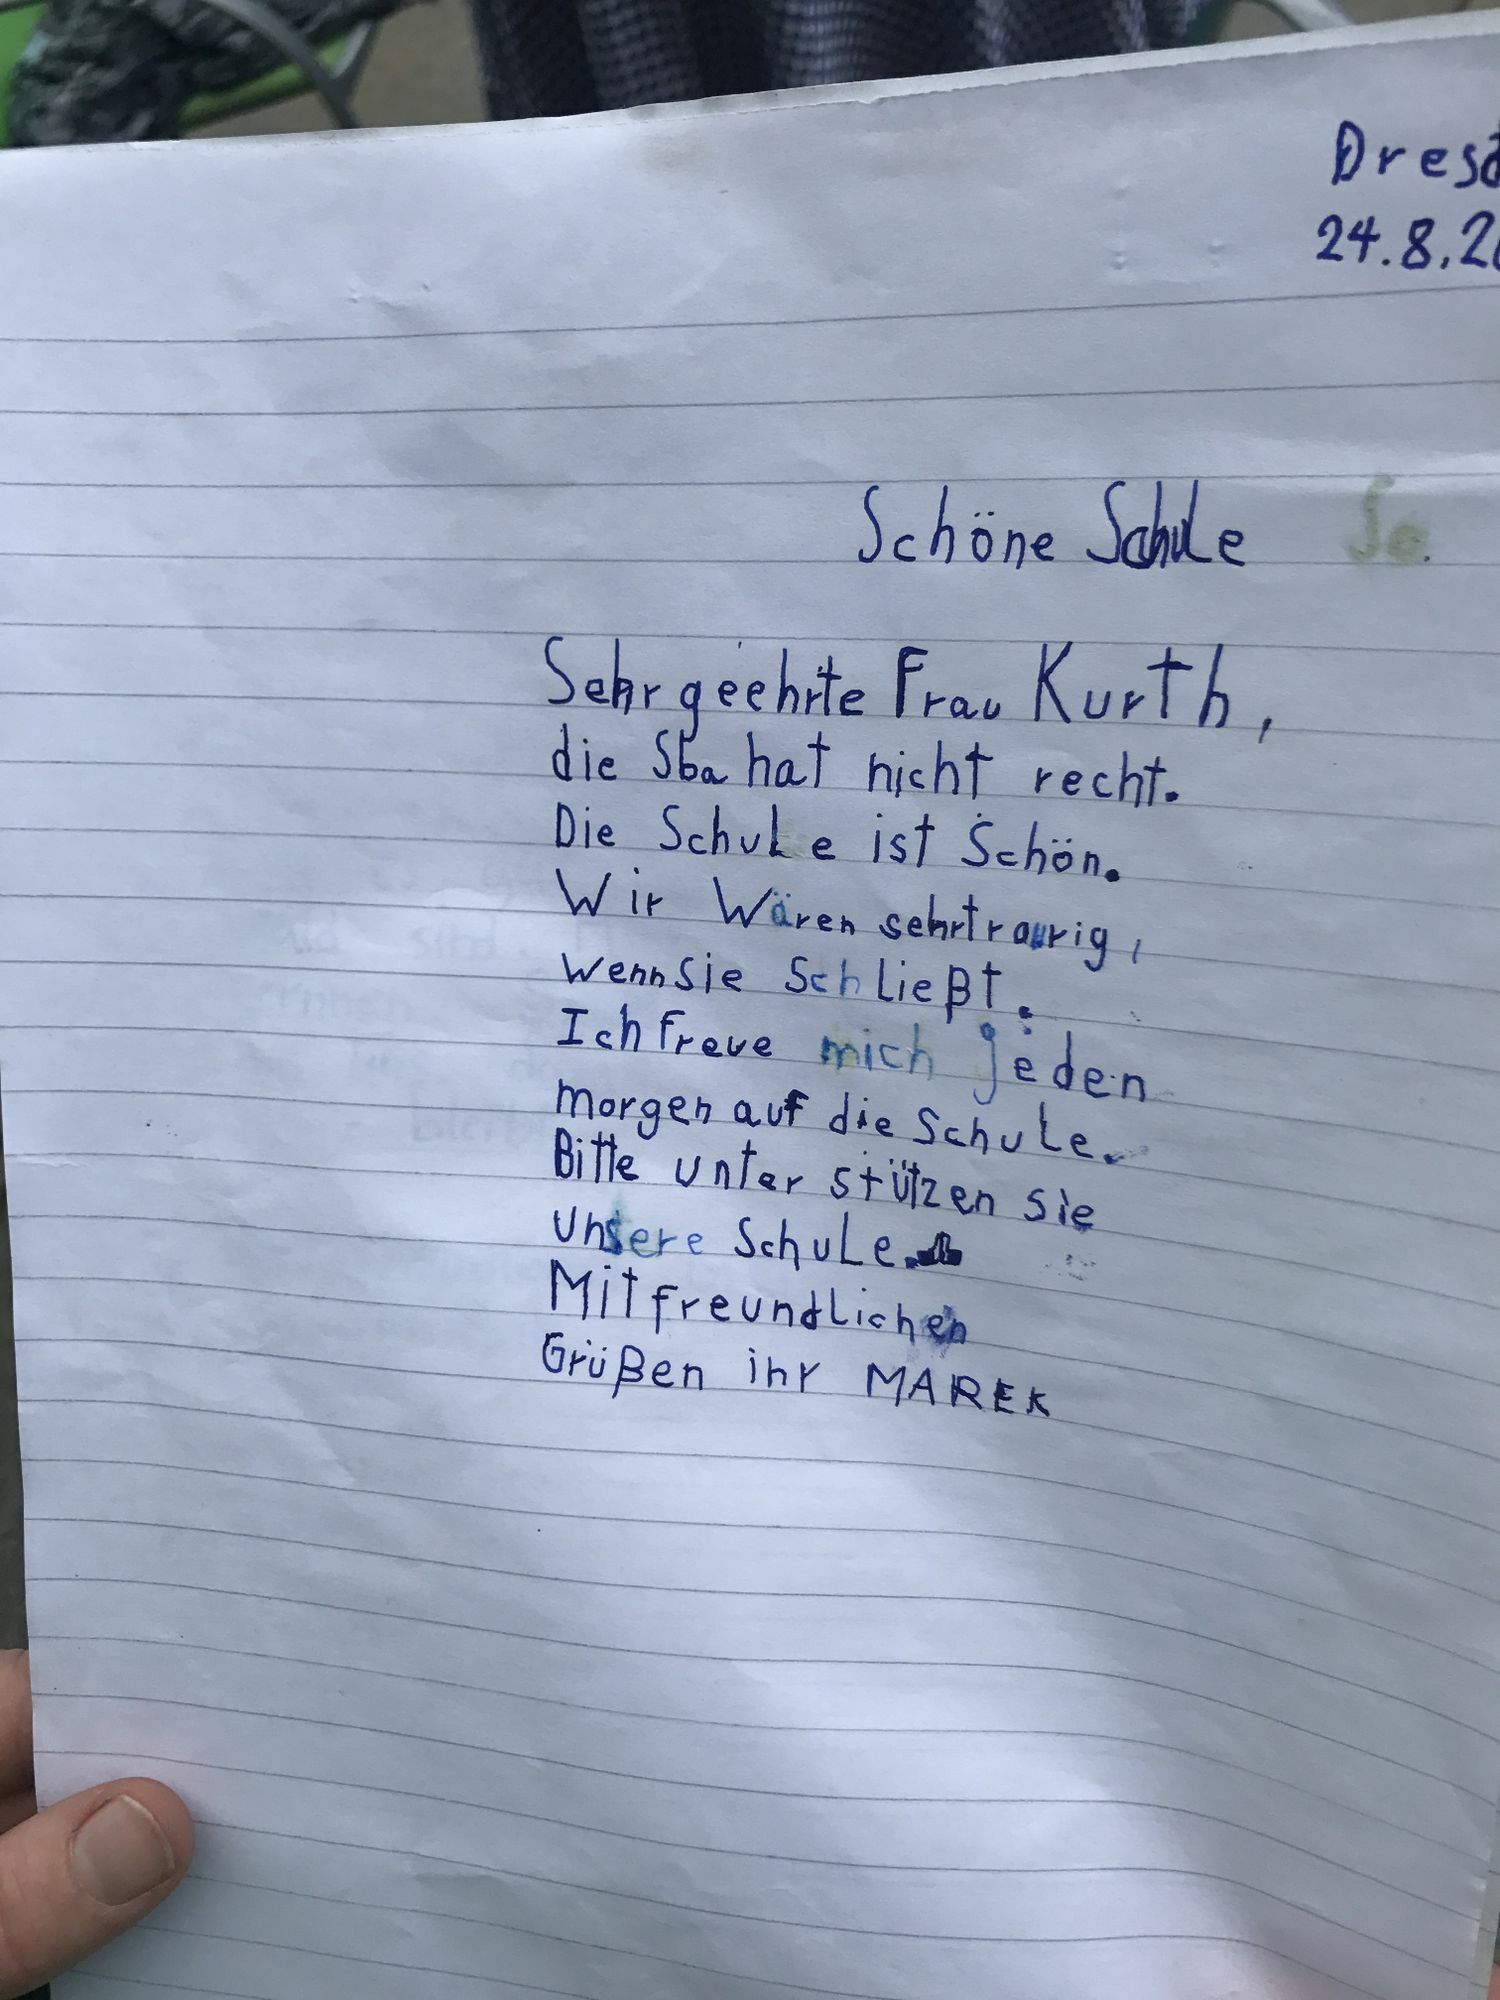 Dresd
24.8.20
Schöne Schule
Sehr geehrte Frau Kurth,
die Sba hat nicht recht.
Die Schule ist Schön.
Wir Wären sehr traurig,
wenn sie Schließt.
Ich freue mich jeden
morgen auf die Schule.
Bitte unter stützen sie
unsere Schule.
Mit freundlichen
Grüßen ihr MAREK